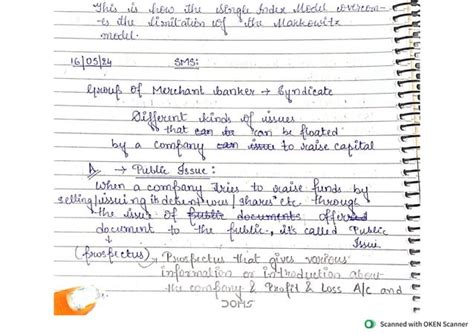 This is how the Single Index Model overcom-
es the limitation of the Markowitz
model.
16/05/24 SMS:
Group of Merchant banker → Syndicate
Different kinds of issues
that can be can be floated
by a company can issue to raise capital
A → Public Issue:
When a company tries to raise funds by
selling/issuing its debentures/shares etc. through
the issue of public documents offered
document to the public, it's called Public
Issue.
(prospectus) Prospectus that gives various
information or introduction about
the company & Profit & Loss A/c and
DOMS
Scanned with OKEN Scanner